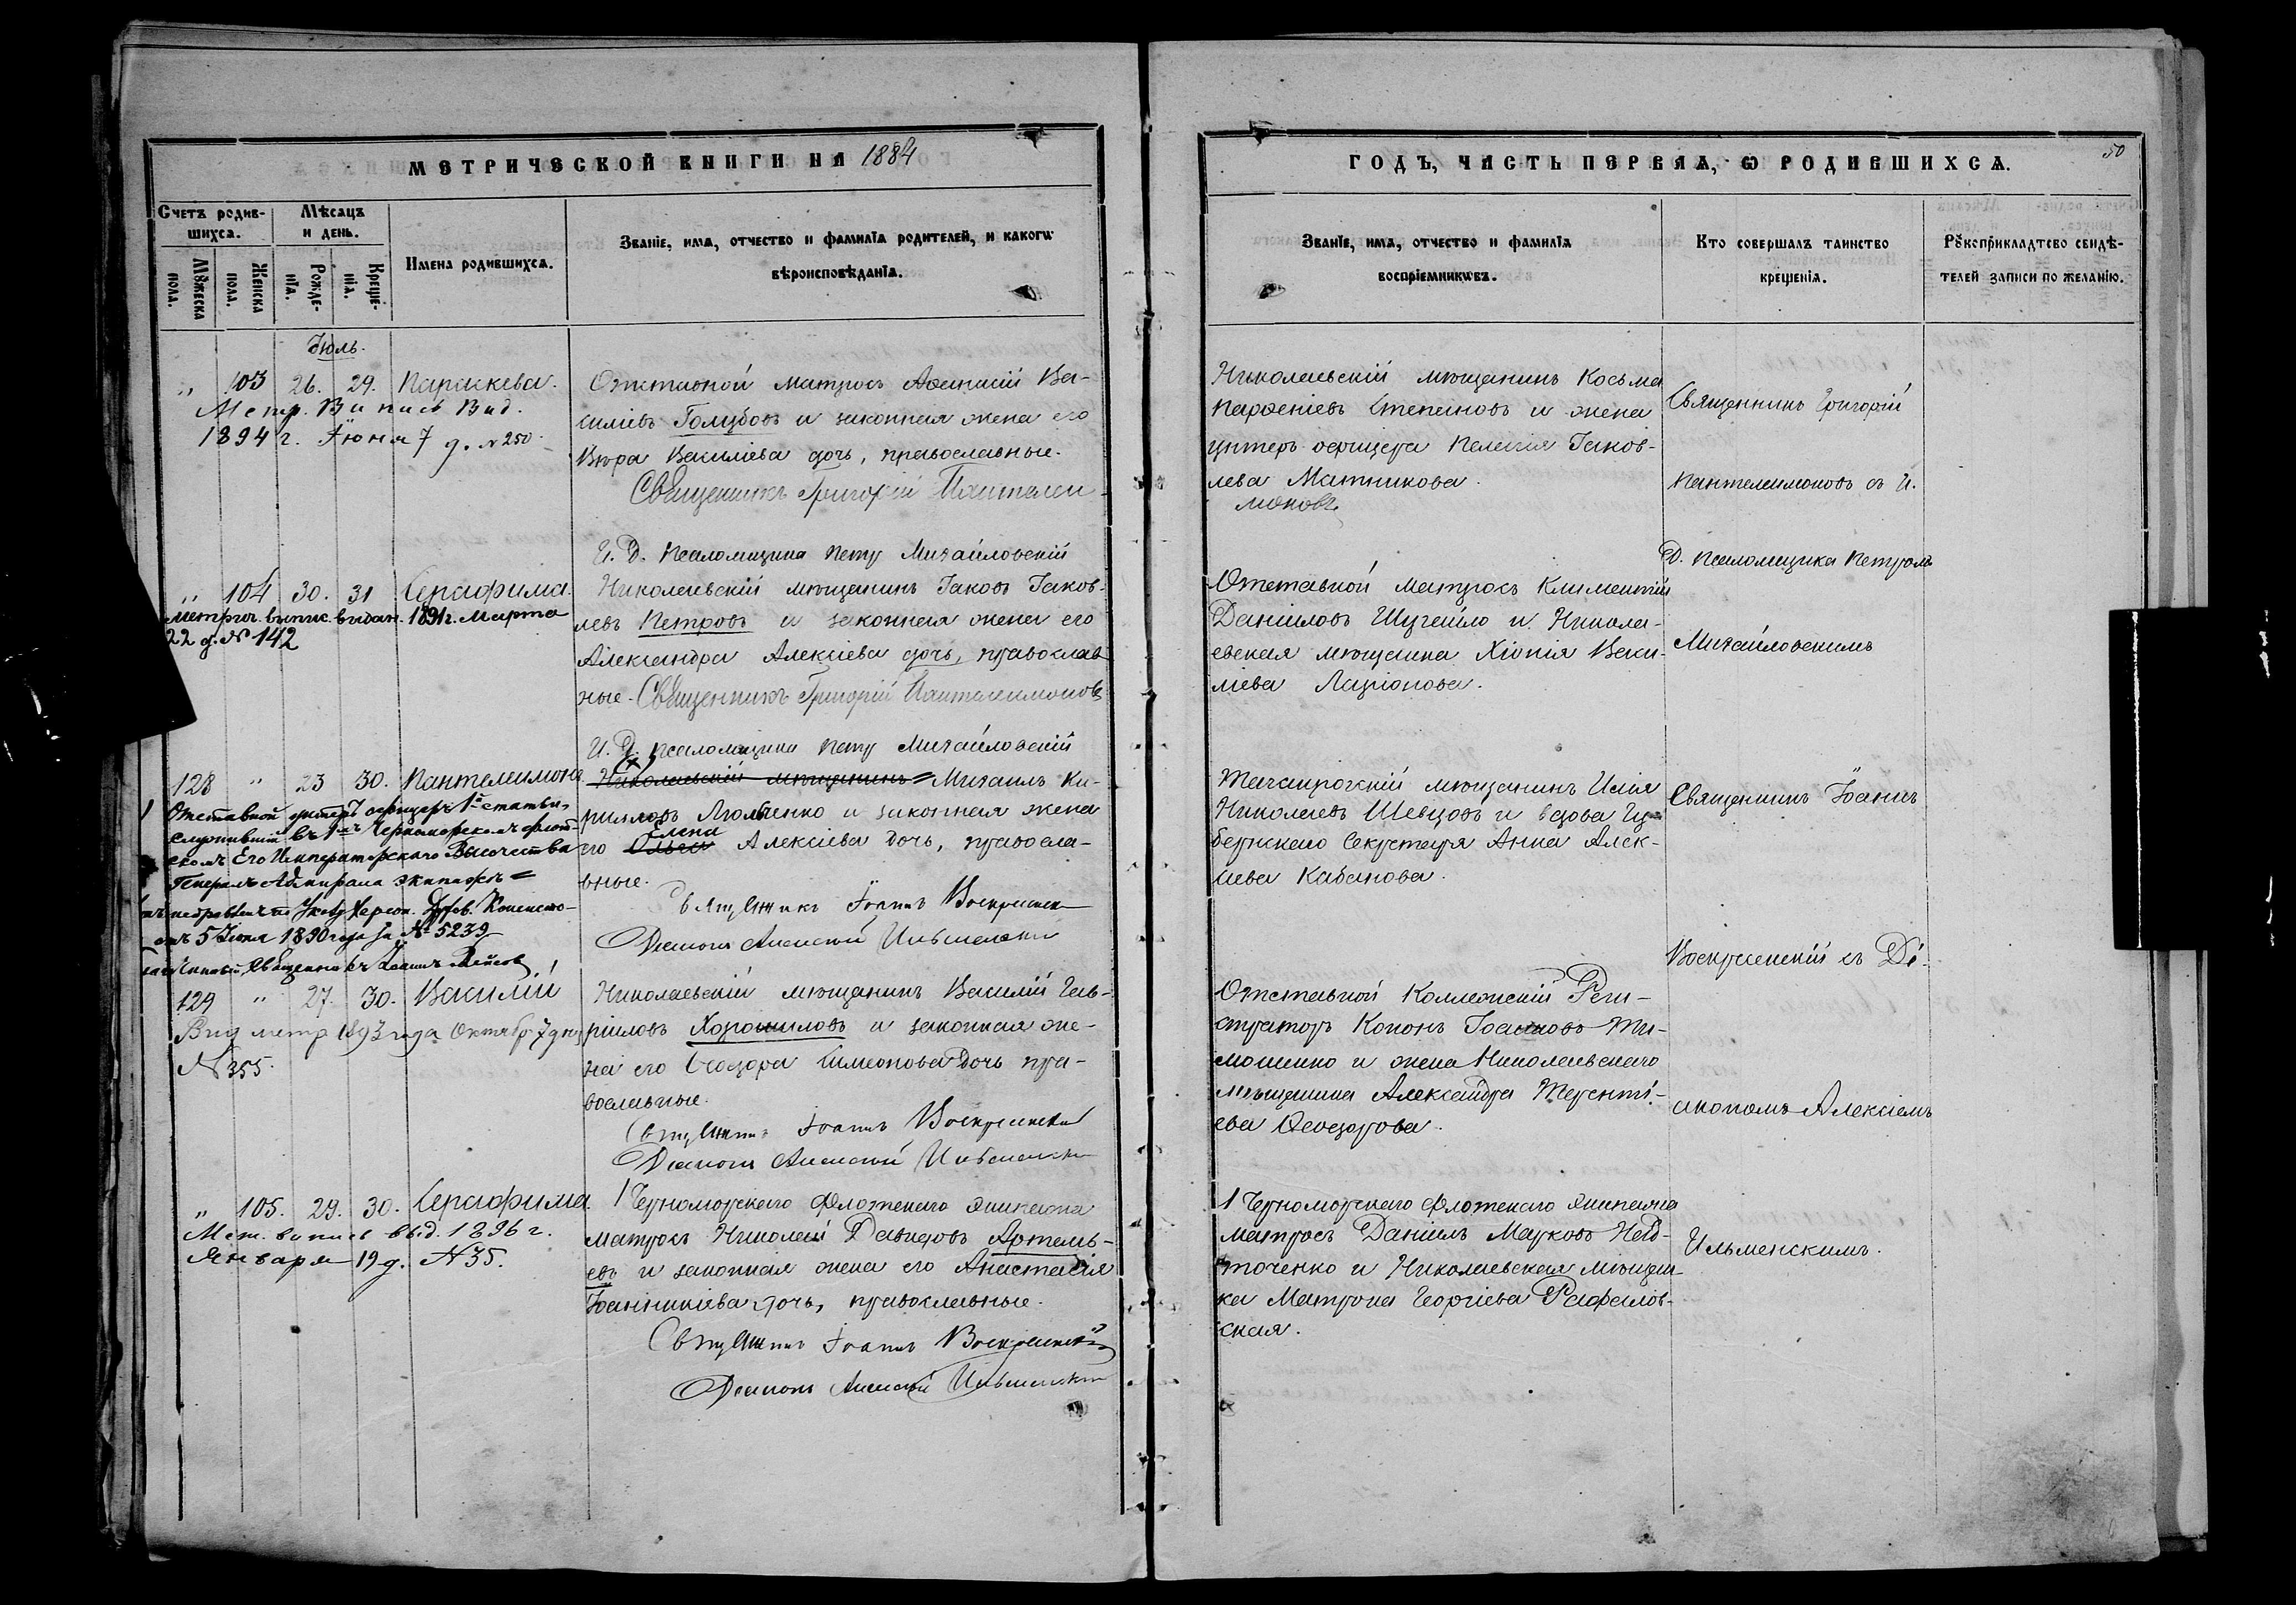 МЕТРИЧЕСКОЙ КНИГИ НА 1884
ГОДЪ, ЧАСТЬ ПЕРВАЯ, Ѡ РОДИВШИХСѦ.
50
Счетъ родив-
шихсѧ.
Мѣсѧцъ
и день.
Мꙋжеска
пола.
Женска
пола.
Рожде-
нїѧ.
Креще-
нїѧ.
Имена родившихсѧ.
Званїе, имѧ, отчество и фамилїѧ родителей, и какогѡ
вѣроисповѣданїѧ.
Званїе, имѧ, отчество и фамилїѧ
воспрїемникѡвъ.
Кто совершалъ таинство
крещенїѧ.
Рꙋкоприкладтсво свидѣ-
телей записи по желанїю.
Іюль.
" 103 26. 29. Параскева.
Метр. Выпись Выд.
1894 г. Іюня 7 д. № 250.
Отставной матросъ Аѳанасій Ва-
силіевъ Голубовъ и законная жена его
Вѣра Василіева дочь, православные.
Священникъ Григорій Пантелеи-
моновъ
И. Д. Псаломщика Петръ Михайловскій
Николаевскій мѣщанинъ Косьма
Парѳеніевъ Степановъ и жена
унтеръ-офицера Пелагія Іаков-
лева Матникова.
Священникъ Григорій
Пантелеимоновъ съ И.
Д. Псаломщика Петромъ
Михайловскимъ
" 104 30. 31 Серафима.
Метрич. выпис. выдан. 1891 г. Марта
22 д. № 142
Николаевскій мѣщанинъ Іаковъ Іаков-
левъ Петровъ и законная жена его
Александра Алексіева дочь, православ-
ные. Священникъ Григорій Пантелеимоновъ
И. Д. Псаломщика Петръ Михайловскій
Отставной матросъ Климентій
Даніиловъ Шугайло и Никола-
евская мѣщанка Хіонія Васи-
ліева Ларіонова.
128 " 23 30. Пантелеимонъ
Отставной унтеръ офицеръ 1й статьи,
служившій въ 1мъ Черноморскомъ флот-
скомъ Его Императорскаго Высочества
Генералъ Адмирала экипажѣ
Херсон. Дух. Консисто-
отъ 5 Іюня 1890 года за № 5239
Священникъ Іоаннъ
Николаевскій мѣщанинъ Михаилъ Ки-
рилловъ Любченко и законная жена
его Ольга Елена Алексіева дочь, правосла-
вные.
Священникъ Іоаннъ Воскресенскій
Діаконъ Алексій Ильменскій
Таганрогскій мѣщанинъ Илія
Николаевъ Шевцовъ и вдова Гу-
бернскаго Секретаря Анна Алек-
сіева Кабанова.
Священникъ Іоаннъ
Воскресенскій съ Ді-
акономъ Алексіемъ
Ильменскимъ.
129 " 27. 30. Василій
Выд метр 1893 года Октябр 7 дня
№ 355.
Николаевскій мѣщанинъ Василій Гав-
ріиловъ Хорошиловъ и законная же-
на его Ѳеодора Симеонова дочь пра-
вославные.
Священникъ Іоаннъ Воскресенскій
Діаконъ Алексій Ильменскій
Отставной Коллежскій Реги-
страторъ Кононъ Іоанновъ Ти-
мошенко и жена Николаевскаго
мѣщанина Александра Теренті-
ева Ѳеодорова.
" 105. 29. 30. Серафима.
Мет. выпись выд. 1896 г.
Января 19 д. № 35.
1 Черноморскаго Флотскаго экипажа
матросъ Николай Давидовъ Артемь-
евъ и законная жена его Анастасія
Іоанникіева дочь, православные.
Священникъ Іоаннъ Воскресенскій
Діаконъ Алексій Ильменскій
1 Черноморскаго Флотскаго экипажа
матросъ Даніилъ Марковъ
и Николаевская мѣщан-
ка Матрона Георгіева Рафалов-
ская.